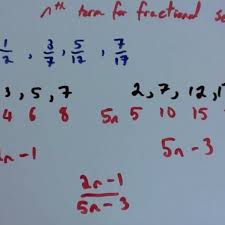 nth term for fractional se
1/2, 3/7, 5/12, 7/17
3, 5, 7 2, 7, 12, 1
4 6 8 5n 5 10 15
2n-1 5n-3
2n-1
5n-3